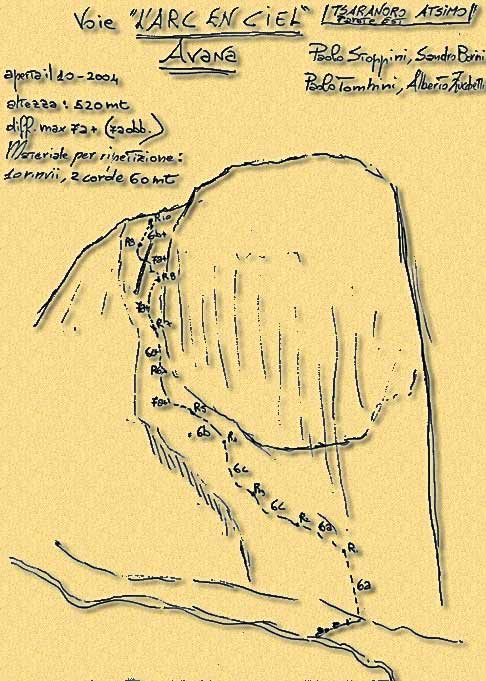 Voie "L'ARC EN CIEL"
TSARANORO ATSIMO
Parete Est
AVANA
Paolo Stoppini, Sandro Borini
Paolo Tombini, Alberto Zucchetti
aperta il 10-2004
altezza: 520 mt
diff. max 7a+ (7a obb.)
Materiale per ripetizione:
10 rinvii, 2 corde 60 mt
R10
R9
6b+
7a+
R8
7a+
R7
6a+
R6
7a+
R5
6b
R4
6c
R3
6c
R2
6a
R1
6a